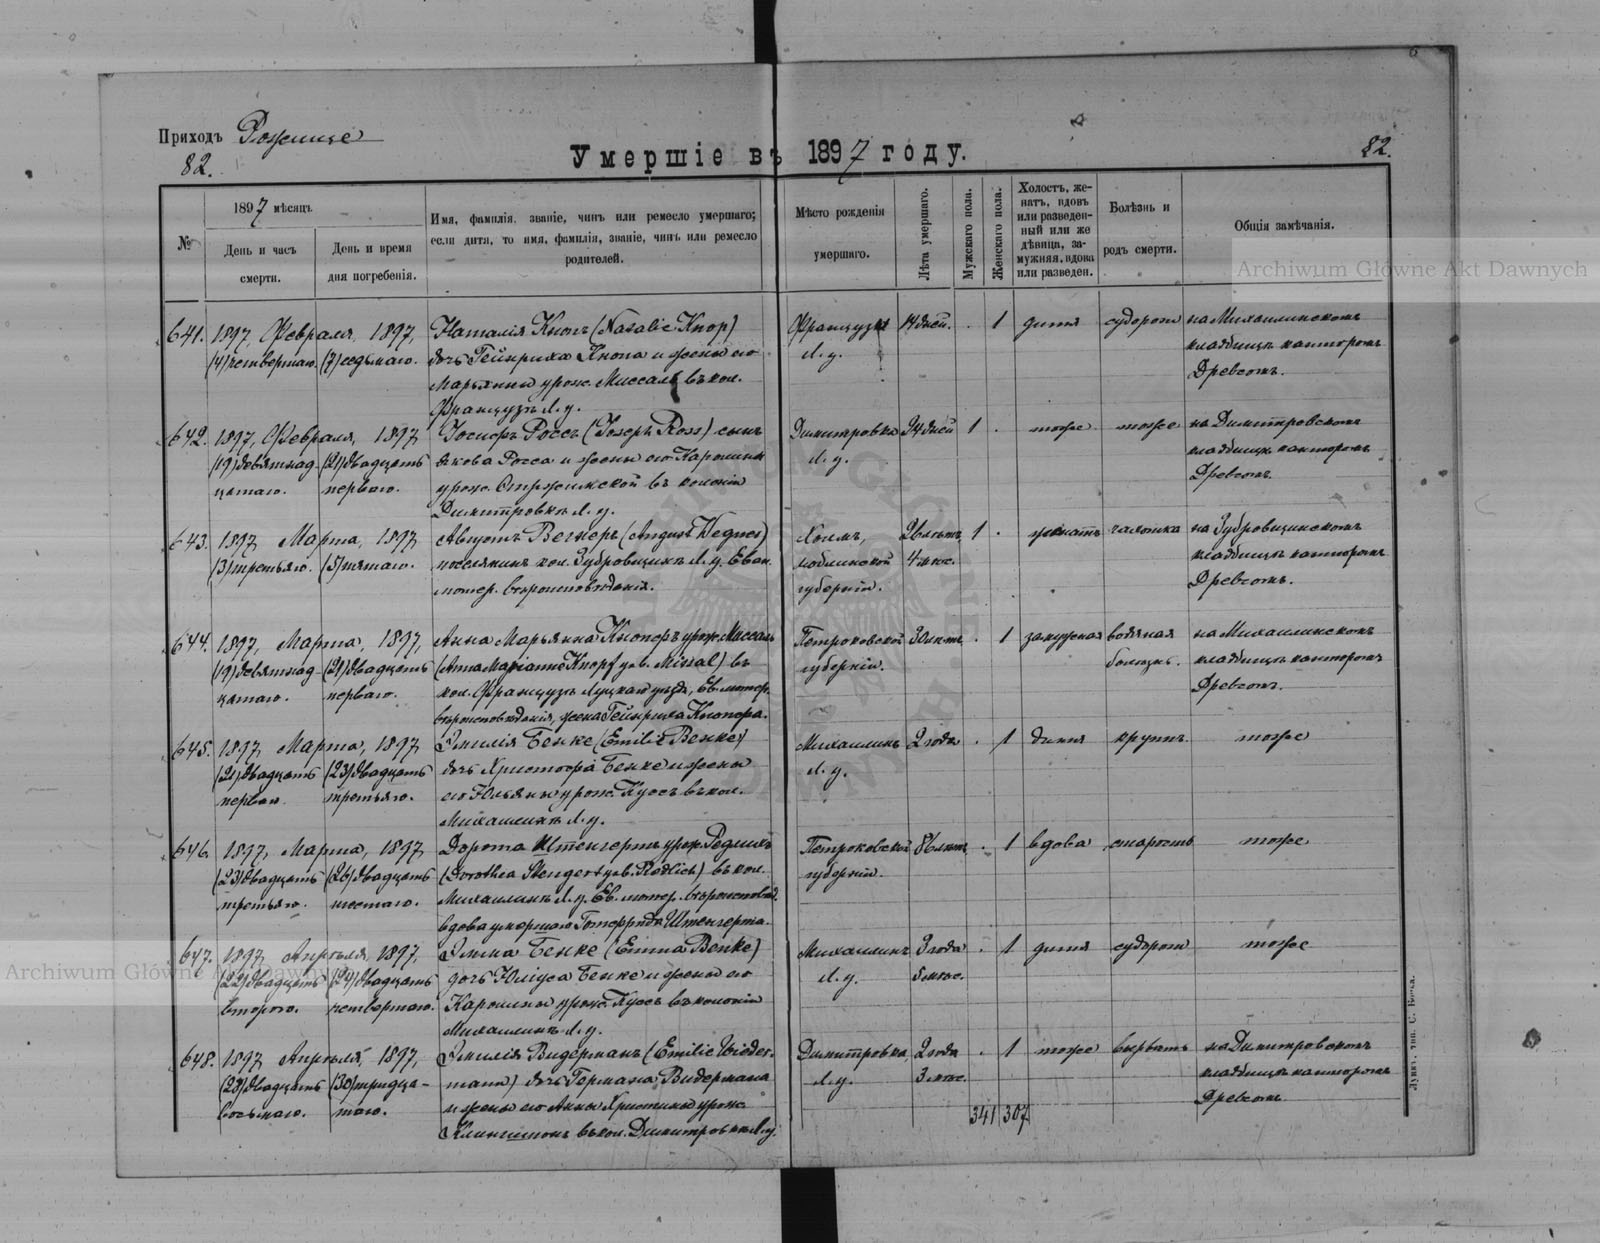 Приходъ Рожище
82.
Умершіе въ 1897 году.
82.
№
1897 мѣсяцъ
День и часъ смерти.
День и время дня погребенія.
Имя, фамилія, званіе, чинъ или ремесло умершаго;
если дитя, то имя, фамилія, званіе, чинъ или ремесло
родителей.
Мѣсто рожденія
умершаго.
Лѣта умершаго.
Мужскаго пола.
Женскаго пола.
Холостъ, же-
натъ, вдовъ
или разведен-
ный или же
дѣвица, за-
мужняя, вдова
или разведен.
Болѣзнь и
родъ смерти.
Общія замѣчанія.
Archiwum Główne Akt Dawnych
641. 1897, Февраля, 1897, Наталія Кнопъ (Natalie Knop) Французъ 14 дней. . 1 дитя судорги на Михалинскомъ
(4) четвертаго. (7) седьмаго. дочь Гейнриха Кнопа и жены его Л. у. кладбищѣ канторомъ
Марьянны урож. Миссаль въ кол. Древсомъ.
Французъ Л. у.
642. 1897, Февраля, 1897, Іосифъ Россъ (Ross) сынъ Димитровка 34 дней 1 . тоже тоже на Димитровскомъ
(19) девятнад- (21) двадцать Якова Росса и жены его Каролины Л. у. кладбищѣ канторомъ
цатаго. перваго. урож. въ колоніи Древсомъ.
Димитровкѣ Л. у.
643. 1897, Марта, 1897, Августъ Вегнеръ (August Wegner) Холмъ, 26 лѣтъ 1 . женатъ чахотка на Зубровщинскомъ
(3) третьяго. (5) пятаго. поселянинъ кол. Зубровщинѣ Л. у. Еван. люблинской 4 мѣс. кладбищѣ канторомъ
лютер. вѣроисповѣданія. губерніи. Древсомъ.
644. 1897, Марта, 1897, Анна Марьянна Кнопфъ урож. Миссаль Петроковской 30 лѣтъ . 1 замужная водяная на Михалинскомъ
(19) девятнад- (21) двадцать (Anna Marianne Knopf geb. Missal) въ губерніи. болѣзнь. кладбищѣ канторомъ
цатаго. перваго. кол. Французъ Луцкаго уѣзда, Ев. лютер. Древсомъ.
вѣроисповѣданія, жена Гейнриха Кнопфа.
645. 1897, Марта, 1897, Эмилія Бенке (Emilie Benke) Михалинъ 2 года . 1 дитя крупъ тоже
(21) двадцать (23) двадцать дочь Христофа Бенке и жены Л. у.
перваго третьяго. его Юльяны урож. Куссъ въ кол.
Михалинѣ Л. у.
646. 1897, Марта, 1897, Дорота Штенгертъ урож. Редлихъ Петроковской 86 лѣтъ . 1 вдова старость тоже
(23) двадцать (26) двадцать (Dorothea Stengert geb. Redlich) въ кол. губерніи.
третьяго. шестаго. Михалинѣ Л. у. Ев. лютер. вѣроисповѣд.
вдова умершаго Готфрида Штенгерта.
647. 1897, Апрѣля, 1897, Эмма Бенке (Emma Benke) Михалинъ 3 года . 1 дитя судорги тоже
(22) двадцать (24) двадцать дочь Юліуса Бенке и жены его Л. у. 5 мѣс.
втораго. четвертаго. Каролины урож. Куссъ въ колоніи
Михалинѣ Л. у.
Archiwum Główne Akt Dawnych
648. 1897, Апрѣля, 1897, Эмилія Видерманъ (Emilie Wieder- Димитровка 2 года . 1 тоже на Димитровскомъ
(28) двадцать (30) тридца- mann) дочь Германа Видермана Л. у. 3 мѣс. кладбищѣ канторомъ
восьмаго. таго. и жены его Анны Христины урож. Древсомъ
въ кол. Димитровкѣ Л. у.
341 307